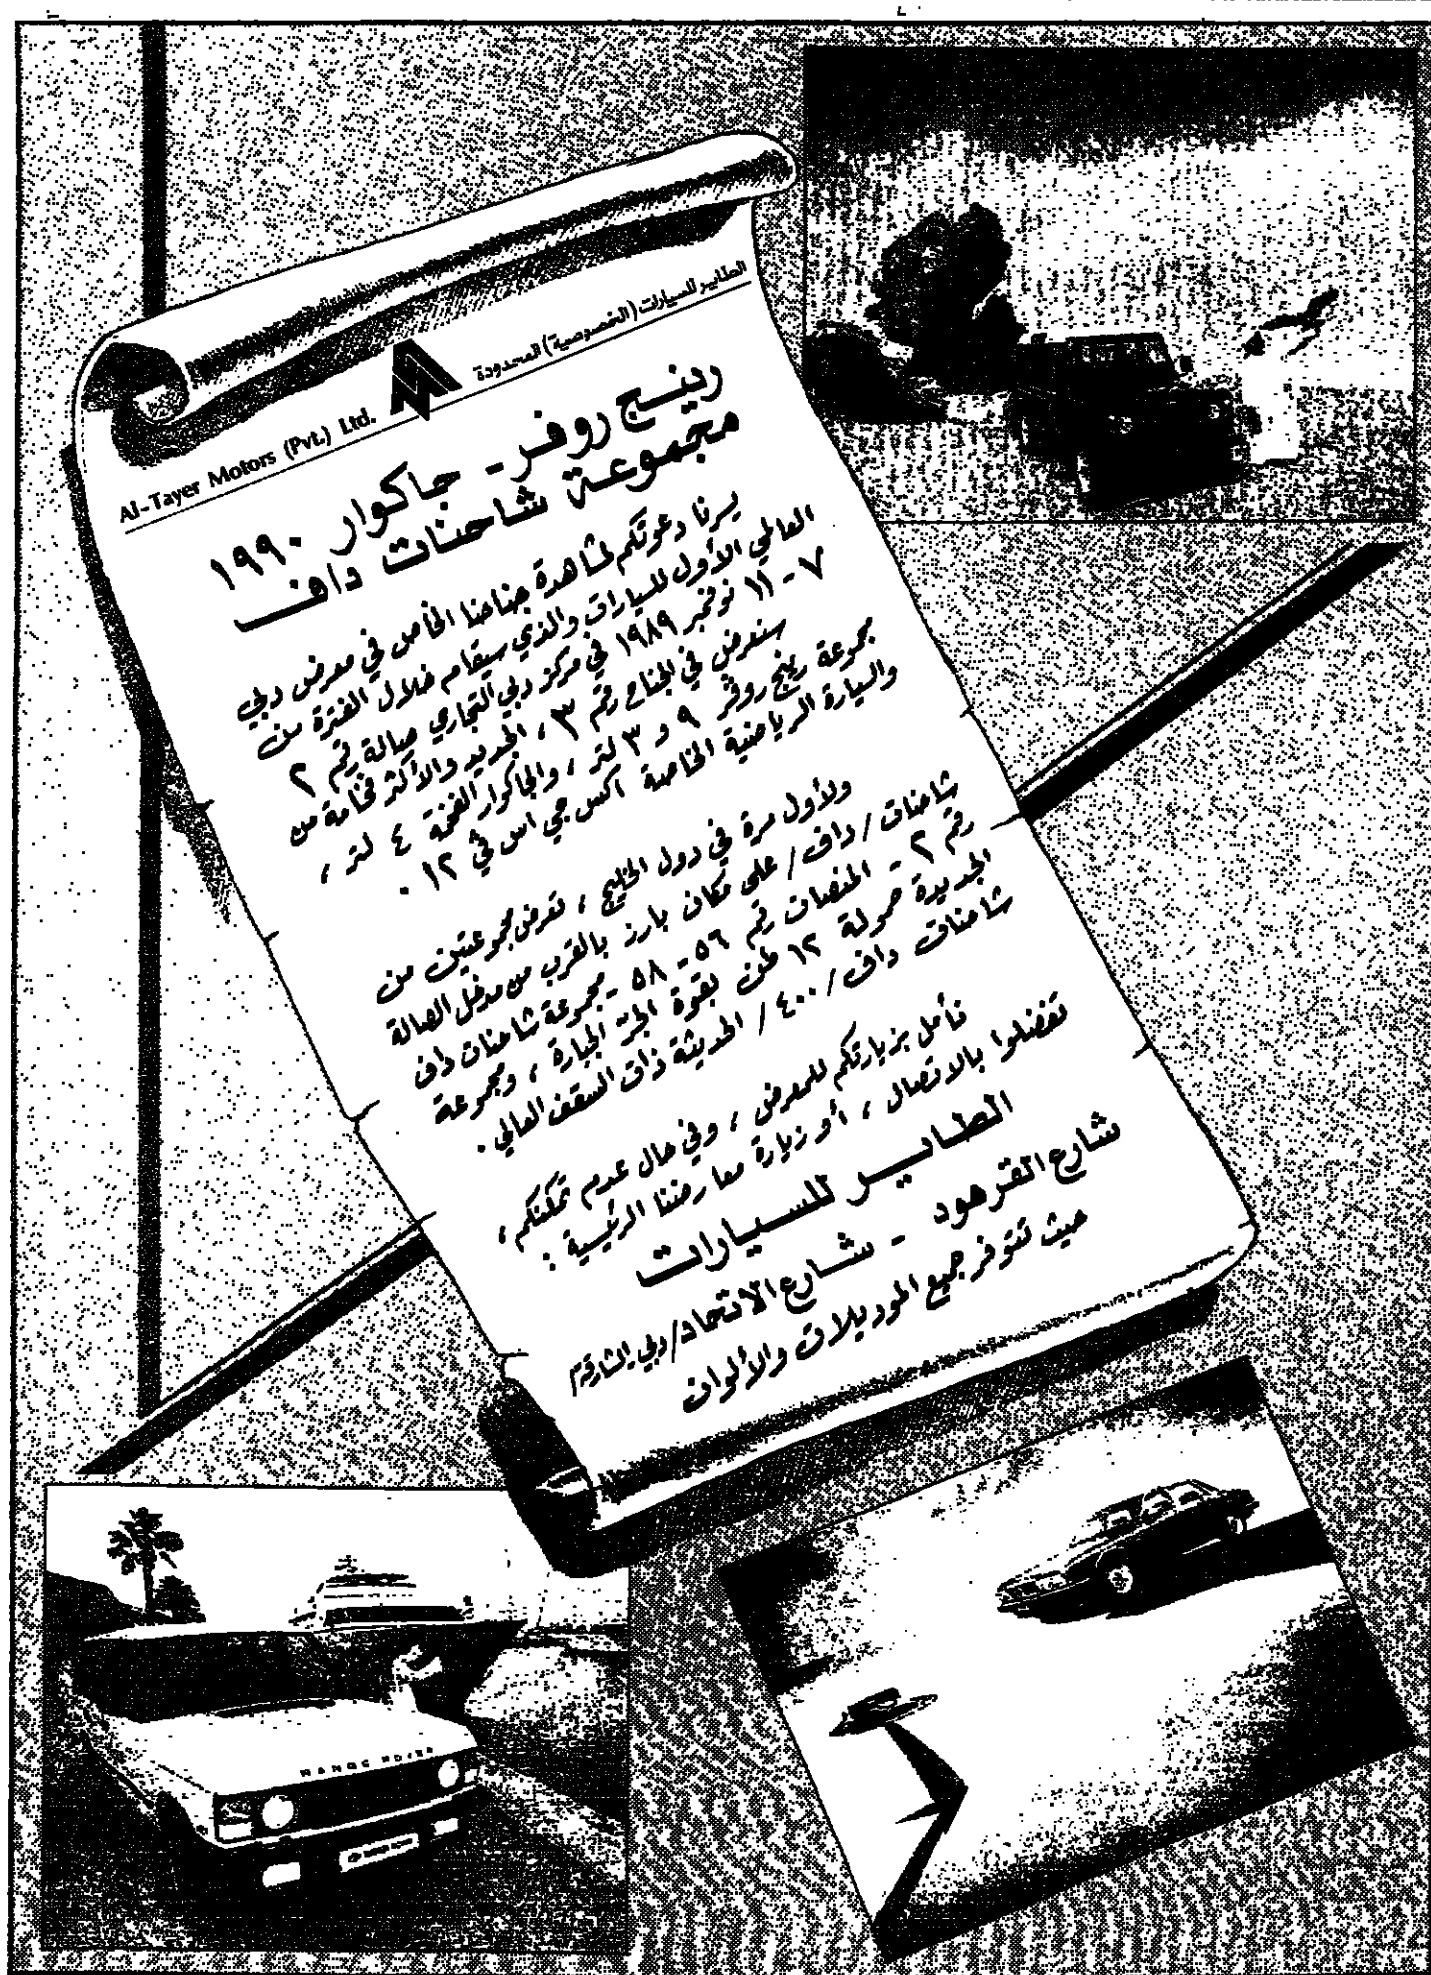 Al-Tayer Motors (Pvt.) Ltd. الطاير للسيارات (الخصوصية) المحدودة
رينج روفر - جاكوار ١٩٩٠
مجموعة شاحنات داف
يسرنا دعوتكم لمشاهدة جناحنا الخاص في معرض دبي
العالمي الأول للسيارات والذي سيقام خلال الفترة من
٧ - ١١ نوفمبر ١٩٨٩ في مركز دبي التجاري صالة رقم ٢
سنعرض في الجناح رقم ٣ ، الجديد والأكثر فخامة من
مجموعة رينج روفر ٩ و ٣ لتر ، والجاكوار الفخمة ٤ لتر ،
والسيارة الرياضية الخاصة اكس جي اس في ١٢ .
ولأول مرة في دول الخليج ، نعرض مجموعتين من
شاحنات / داف / على مكان بارز بالقرب من مدخل الصالة
رقم ٢ - المنصات رقم ٥٦ - ٥٨ - مجموعة شاحنات داف
الجديدة حمولة ١٢ طن بقوة الجر الجبارة ، ومجموعة
شاحنات داف / ٤٠٠ / الحديثة ذات السقف العالي .
نأمل بزيارتكم للمعرض ، وفي حال عدم تمكنكم ،
تفضلوا بالاتصال ، أو زيارة معارضنا الرئيسية :
الطاير للسيارات
شارع القرهود - شارع الاتحاد / دبي الشارقة /
حيث تتوفر جميع الموديلات والألوان
RANGE ROVER